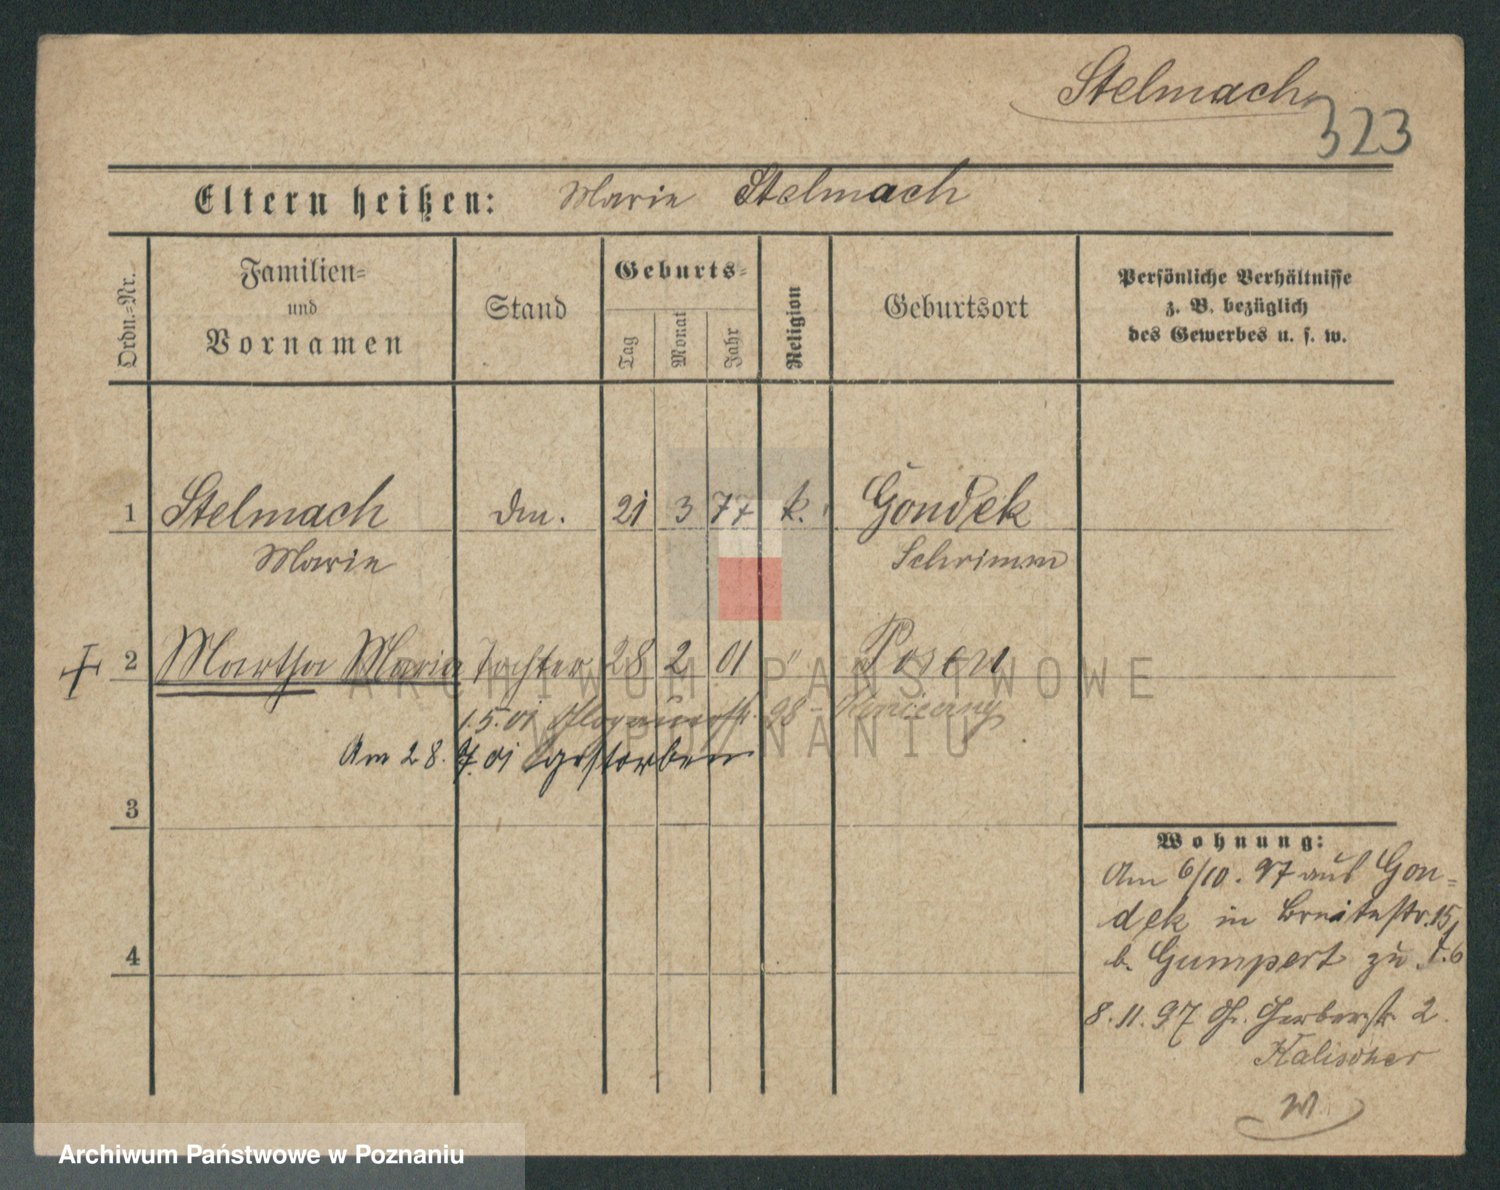 Stelmach
323
Eltern heißen: Marie Stelmach
Ordn.-Nr.
Familien-
und
Vornamen
Stand
Geburts-
Tag
Monat
Jahr
Religion
Geburtsort
Persönliche Verhältnisse
z. B. bezüglich
des Gewerbes u. s. w.
1 Stelmach Dm. 21 3 77 k. Gondek
Marie Schrimm
2 Martha Maria Tochter 28 2 01 " Posen
ARCHIWUM PAŃSTWOWE
1.5.01 98
W POZNANIU
Am 28. 01 gestorben
3
Wohnung:
Am 6/10. 97 aus Gon=
dek in Breitestr. 15
b. Gumpert zu
4
8.11.97 Gr. Gerberstr. 2
Kalischer
Archiwum Państwowe w Poznaniu